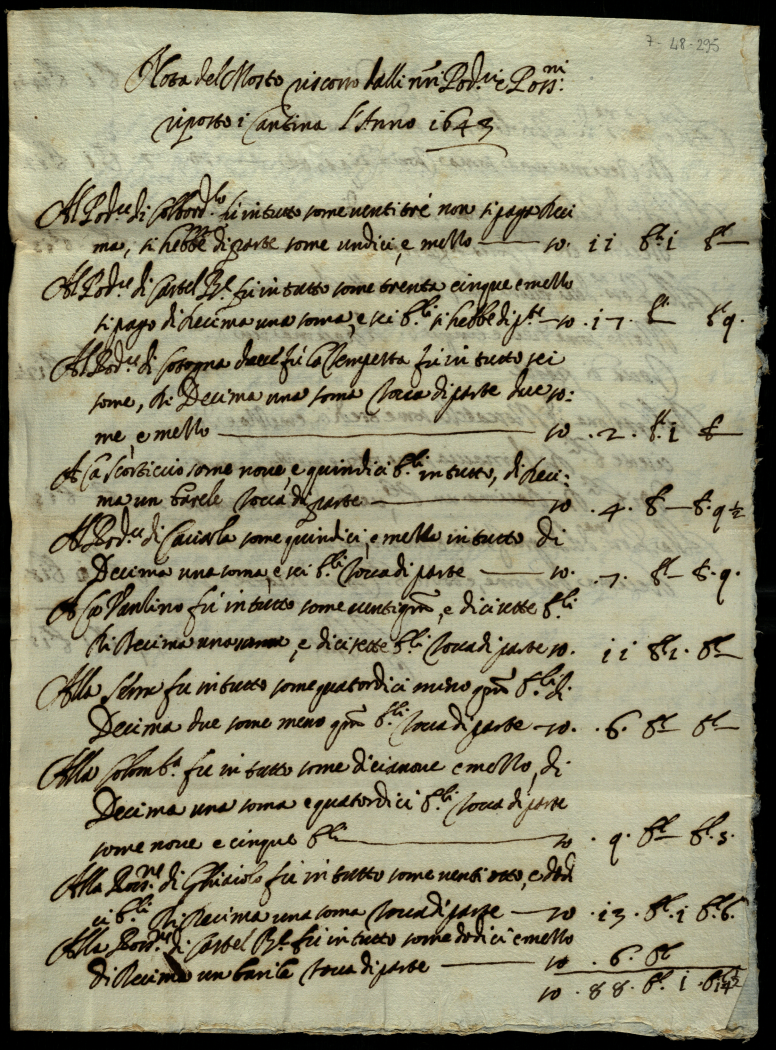 7-48-295
Nota del Mosto riscosso dalli nri Pod.ri e Poss.ni
riposto i Cantina l'Anno 1643
Al Pod.re di Colbord.lo fu in tutto some venti tré non si paga Deci
ma, si hebbe di parte some undici, e mezzo — so. 11 b.li 1 b.li —
Al Pod.re di Castel B. fu in tutto some trenta cinque e mezzo
si pago di decima una soma, e sei b.li si hebbe di p.te — so .17. b.li b.9.
Al Pod.re di fu la Tempesta fu in tutto sei
some, di Decima una soma tocca di parte due so:
me, e mezzo — so .2. b. 1 b —
A Ca Scorticcio some nove, e quindici b.li in tutto, di deci:
ma un barile tocca di parte — so .4. b — b. 9 ½
Al Pod.re di Caciarla some quindici, e mezzo in tutto di
Decima una soma, e sei b.li tocca di parte — so. .7. b — b. 9.
A Ca Paulino fu in tutto some venti qtro, e dicisette b.li
di Decima una soma, e dicisette b.li tocca di parte so. 11 b.1. b —
Alla Selva fu in tutto some quatordici meno qtro b.li di
Decima due some meno qtro b.li tocca di parte — so. .6. b — b —
Alla Colomb.a fu in tutto some dicianove e mezzo, di
Decima una soma e quatordici b.li tocca di parte
some nove e cinque b.li — so .9. b — b. 5.
Alla Poss.ne di Ghiaiolo fu in tutto some venti otto, e dodi
ci b.li di Decima una soma tocca di parte — so .13. b. 1 b. 6.
Alla Poss.ne di Castel B. fu in tutto some dodici e mezzo
di Decima un barile tocca di parte — so .6. b
so .88. b. 1 b. 14 ½